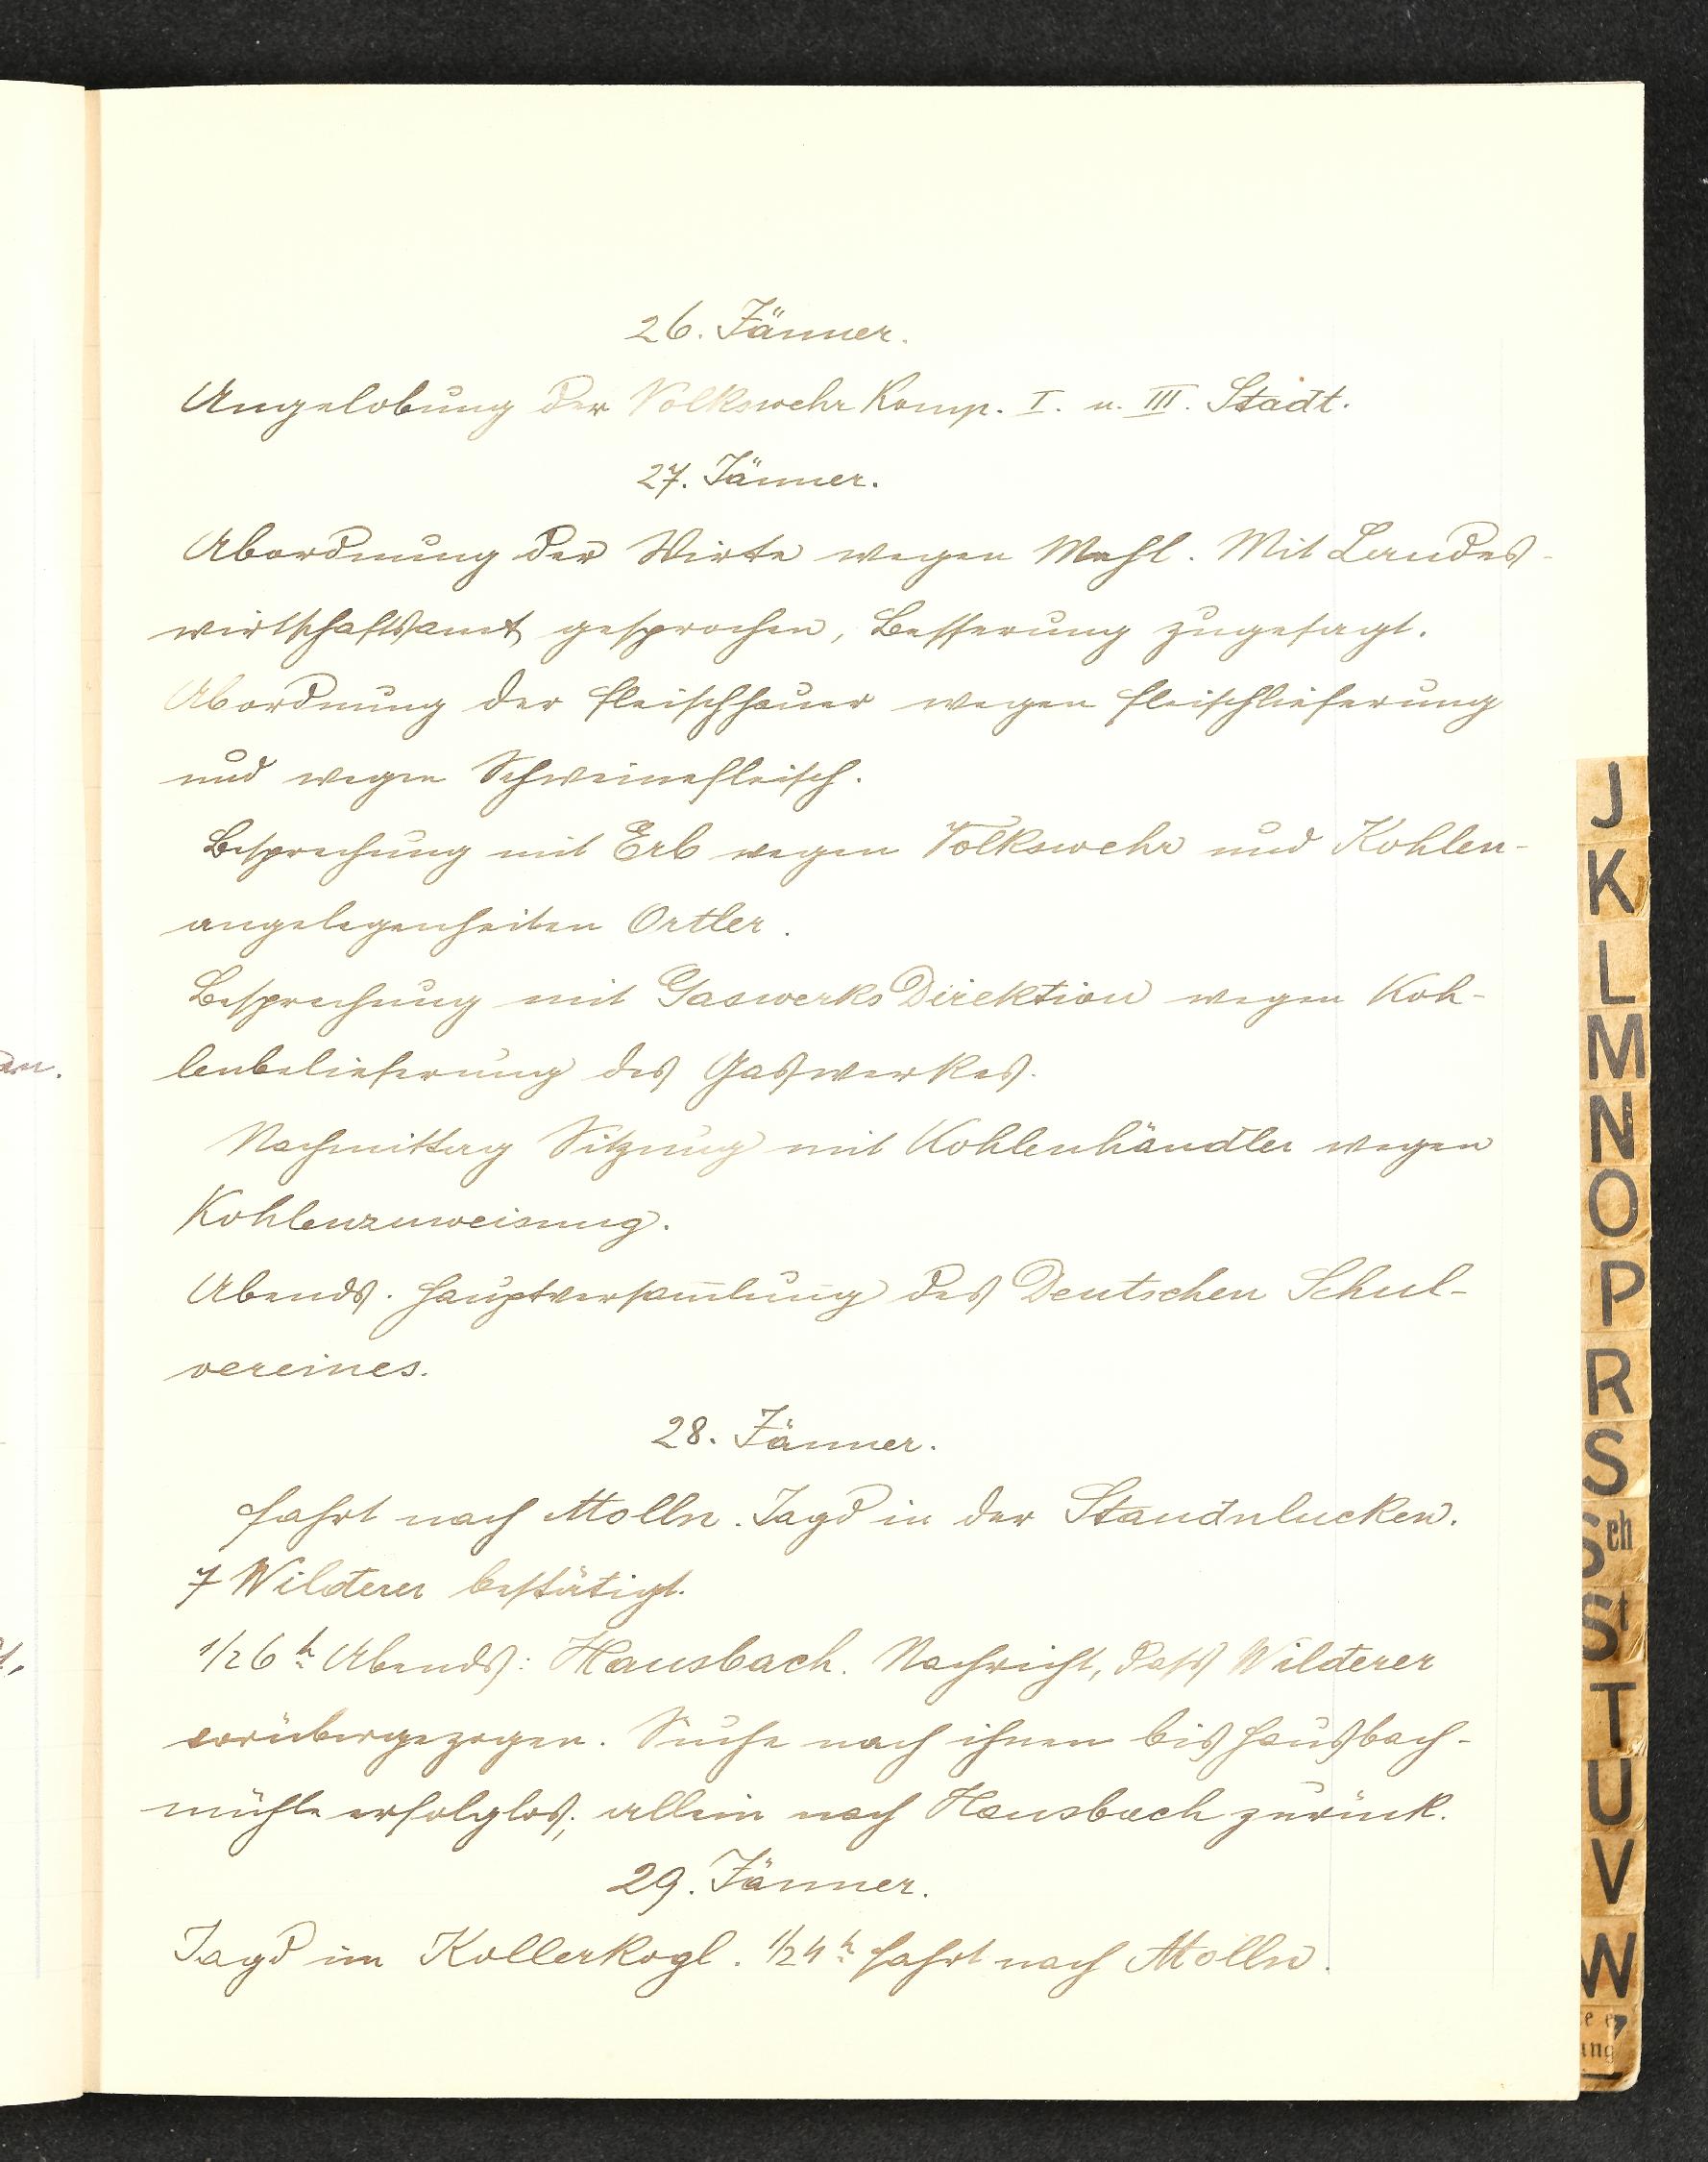 26. Jänner.
Angelobung der Volkswehr Komp. I. u. III. Stadt.
27. Jänner.
Abordnung der Wirte wegen Mehl. Mit Landes-
wirtschaftsamt gesprochen, Besserung zugesagt.
Abordnung der Fleischhauer wegen Fleischlieferung
und wegen Schweinefleisch.
Besprechung mit Erb wegen Volkswehr und Kohlen-
angelegenheiten Ortler.
Besprechung mit Gaswerks Direktion wegen Koh-
lenbelieferung des Gaswerkes.
Nachmittag Sitzung mit Kohlenhändler wegen
Kohlenzuweisung.
Abends. Hauptversam̅lung des Deutschen Schul-
vereines.
28. Jänner.
Fahrt nach Molln. Jagd in der Staudnlucken.
7 Wilderer bestätigt.
1/2 6 h Abends: Hausbach. Nachricht, dass Wilderer
vorübergezogen. Suche nach ihnen bis Hausbach-
mühle erfolglos; allein nach Hausbach zurück.
29. Jänner.
Jagd im Kollerkogl. 1/2 4 h Fahrt nach Molln.
J
K
L
M
N
O
P
R
S
Sch
St
T
U
V
W